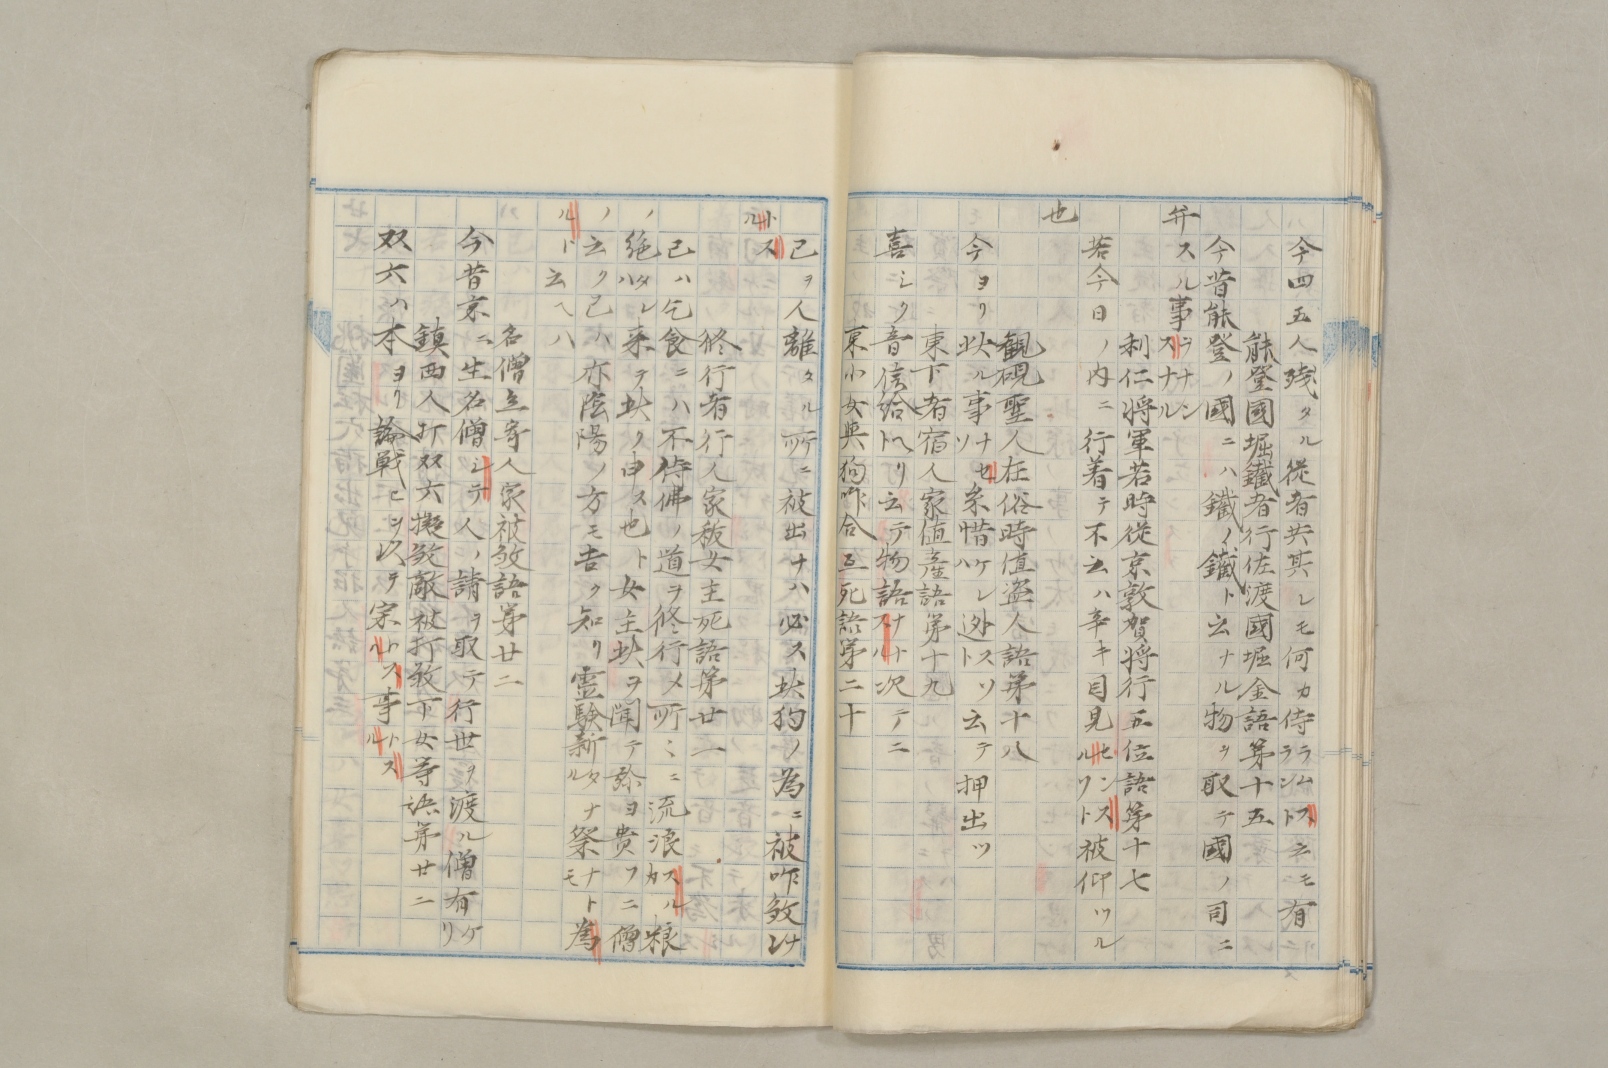 今四五人残タル従者共其レモ何カ侍ラムズラント云モ有
能登國堀鐵者行佐渡國堀金語第十五
今昔能登ノ國ニハ鐵ノ鐵ト云ナル物ヲ取テ國ノ司ニ
弁スル事ヲナンスナル
利仁将軍若時従京敦賀将行五位語第十七
若今日ノ内ニ行着テ不云ハ辛キ目見センスルソト被仰ツル
也
観硯聖人在俗時値盗人語第十八
今ヨリ此ル事ナセソ糸惜ケレハ迯スソト云テ押出ツ
東下者宿人家値産語第十九
喜シク音信給ヘリト云テ物語スナルナ次テニ
東小女與狗咋合互死語第二十
己ヲ人離タル所ニ被出ナハ必ス此狗ノ為ニ被咋敛ナン
トスル
修行者行人家秡女主死語第廿一
己ハ乞食ニハ不侍佛ノ道ヲ修行メ所々ニ流浪スルカ粮
ノ絶タレハ来ヲ此ク申ス也ト女主此ヲ聞テ弥ヨ貴フニ僧
ノ云ク己ハ亦陰陽ノ方モ吉ク知リ霊驗新タナル祭ナトモ為
ルト云ヘハ
名僧立寄人家被敛語第廿二
今昔京ニ生名僧シテ人ノ請ヲ取テ行世ヲ渡ル僧有ケリ
鎮西人打双六擬敛敵被打敛下女等語第廿二
双六ハ本ヨリ論戦ヒヲ以テ宗トスル事トスル